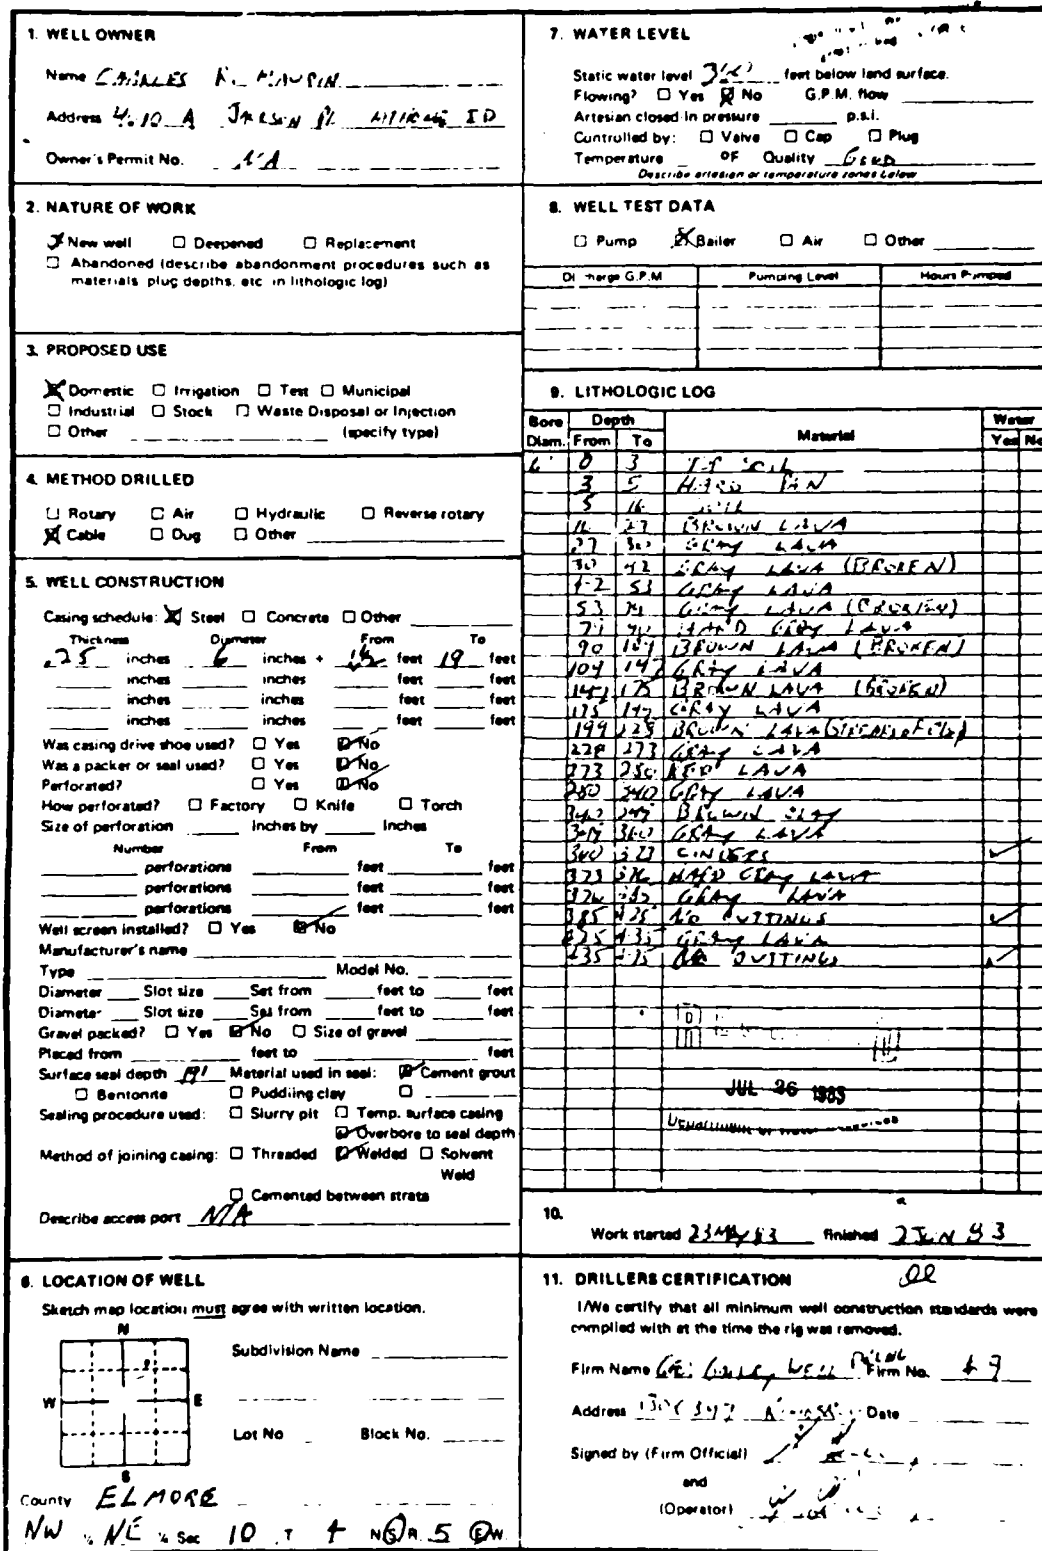 1. WELL OWNER
Name CHARLES R. MAUPIN
Address 4210 A JACKSON PL ID
Owner's Permit No. N/A
2. NATURE OF WORK
New well Deepened Replacement
Abandoned (describe abandonment procedures such as
materials, plug depths, etc. in lithologic log)
3. PROPOSED USE
Domestic Irrigation Test Municipal
Industrial Stock Waste Disposal or Injection
Other (specify type)
4. METHOD DRILLED
Rotary Air Hydraulic Reverse rotary
Cable Dug Other
5. WELL CONSTRUCTION
Casing schedule: Steel Concrete Other
Thickness Diameter From To
.25 inches 6 inches + feet 19 feet
inches inches feet feet
inches inches feet feet
inches inches feet feet
Was casing drive shoe used? Yes No
Was a packer or seal used? Yes No
Perforated? Yes No
How perforated? Factory Knife Torch
Size of perforation inches by inches
Number From To
perforations feet feet
perforations feet feet
perforations feet feet
Well screen installed? Yes No
Manufacturer's name
Type Model No.
Diameter Slot size Set from feet to feet
Diameter Slot size Set from feet to feet
Gravel packed? Yes No Size of gravel
Placed from feet to feet
Surface seal depth 19' Material used in seal: Cement grout
Bentonite Puddling clay
Sealing procedure used: Slurry pit Temp. surface casing
Overbore to seal depth
Method of joining casing: Threaded Welded Solvent
Weld
Cemented between strata
Describe access port N/A
6. LOCATION OF WELL
Sketch map location must agree with written location.
N
W E
S
Subdivision Name
Lot No Block No.
County ELMORE
NW ¼ NE ¼ Sec 10 T 4 N S R 5 E W
7. WATER LEVEL
Static water level feet below land surface.
Flowing? Yes No G.P.M. flow
Artesian closed-in pressure p.s.i.
Controlled by: Valve Cap Plug
Temperature OF Quality GOOD
Describe artesian or temperature zones below
8. WELL TEST DATA
Pump Bailer Air Other
Discharge G.P.M Pumping Level Hours Pumped
9. LITHOLOGIC LOG
Bore Depth Water
Diam. From To Material Yes No
6" 0 3 TOP SOIL
3 5 HARD PAN
5 16 SOIL
16 27 BROWN LAVA
27 30 GRAY LAVA
30 42 GRAY LAVA (BROKEN)
42 53 GRAY LAVA
53 71 GRAY LAVA (BROKEN)
71 90 HARD GRAY LAVA
90 109 BROWN LAVA (BROKEN)
109 147 GRAY LAVA
147 175 BROWN LAVA (BROKEN)
175 199 GRAY LAVA
199 228 BROWN LAVA
228 273 GRAY LAVA
273 280 RED LAVA
280 340 GRAY LAVA
340 349 BROWN CLAY
349 360 GRAY LAVA
360 373 CINDERS
373 376 HARD GRAY LAVA
376 385 GRAY LAVA
385 425 NO CUTTINGS
425 435 GRAY LAVA
435 NO CUTTINGS
JUL 26 1983
Department of Water Resources
10.
Work started 23 MAY 83 finished 2 JUN 83
11. DRILLERS CERTIFICATION
I/We certify that all minimum well construction standards were
complied with at the time the rig was removed.
Firm Name WELL Firm No.
Address Date
Signed by (Firm Official)
and
(Operator)